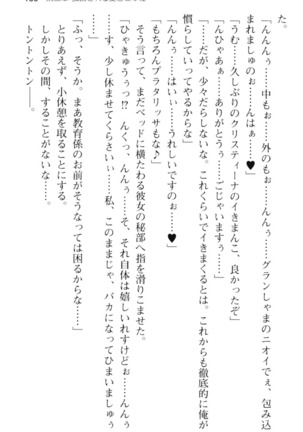 た。
「んんんぅ……中もぉ……外のもぉ……んんぅ……グランしゃまのニオイでぇ、包み込
まれましゅのぉ……んはぁ……♥」
「うむ……久しぶりのクリスティーナのイきまんこ、良かったぞ」
「んひゃあぁ……ありがとうぅ……ごじゃいますぅ……」
「……だが、少々だらしないな。これくらいでイきまくるとは。これからも徹底的に俺が
慣らしていってやるからな」
「んんぅ……はいぃ……うれしいですのぉ……♥」
「もちろんプラタリッサもな♪」
そう言って、まだベッドに横たわる彼女の秘部へ指を滑りこませた。
「ひゃきゅうぅっ!?　んくっ、んんぅ……そ、それ自体は嬉しいれすけどぉ……んんぅ
……す、少し休ませてくらさいぃ……私、このままじゃ、バカになってひまいましゅぅ
……」
「ふっ、そうか。まあ教育係のお前がそうなっては困るからな……」
とりあえず、小休憩を取ることにする。
しかしその間、することがないな……。
トントントン――。